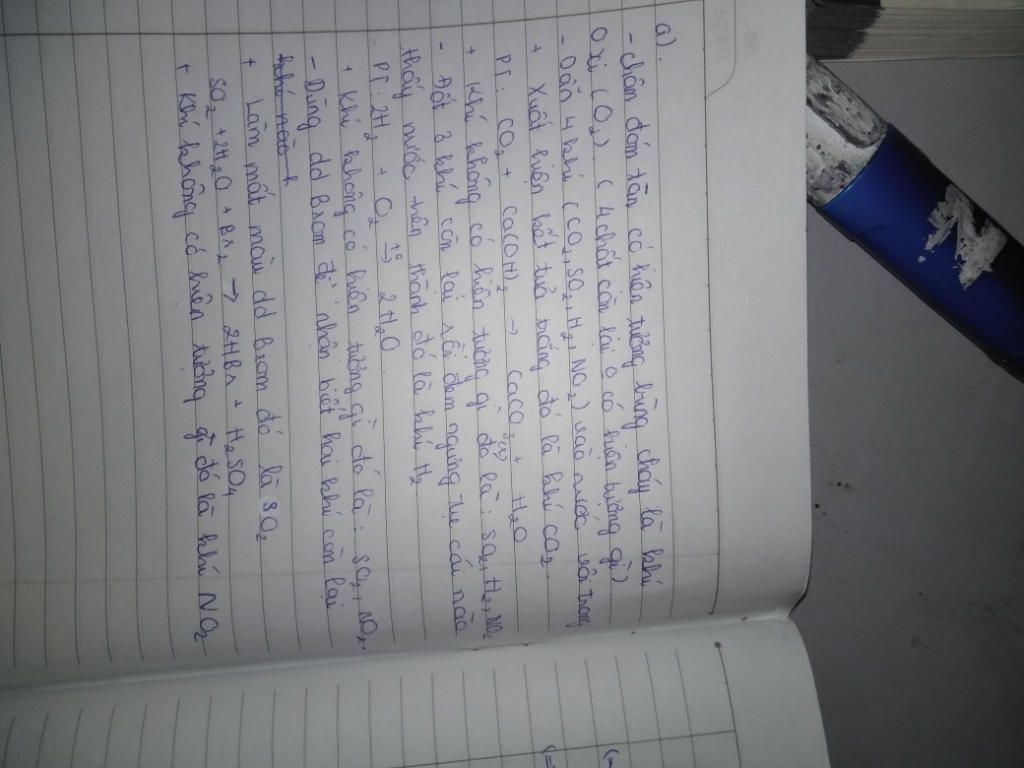 a).
- châm đóm tàn có hiện tượng bùng cháy là khí
Oxi (O2). (4 chất còn lại 0 có hiện tượng gì)
- Dẫn 4 khí (CO2, SO2, H2, NO2) vào nước vôi trong
+ Xuất hiện kết tủa trắng đó là khí CO2
PT: CO2 + Ca(OH)2 → CaCO3 + H2O
+ Khí không có hiện tượng gì đó là: SO2, H2, NO2
- Đốt 3 khí còn lại rồi đem ngưng tụ cái nào
thấy nước tạo thành đó là khí H2.
PT: 2H2 + O2 → 2H2O
+ Khí không có hiện tượng gì đó là: SO2, NO2.
- Dùng dd Brom để nhận biết hai khí còn lại
+ Làm mất màu dd brom đó là SO2
SO2 + 2H2O + Br2 → 2HBr + H2SO4
+ Khí không có hiện tượng gì đó là khí NO2